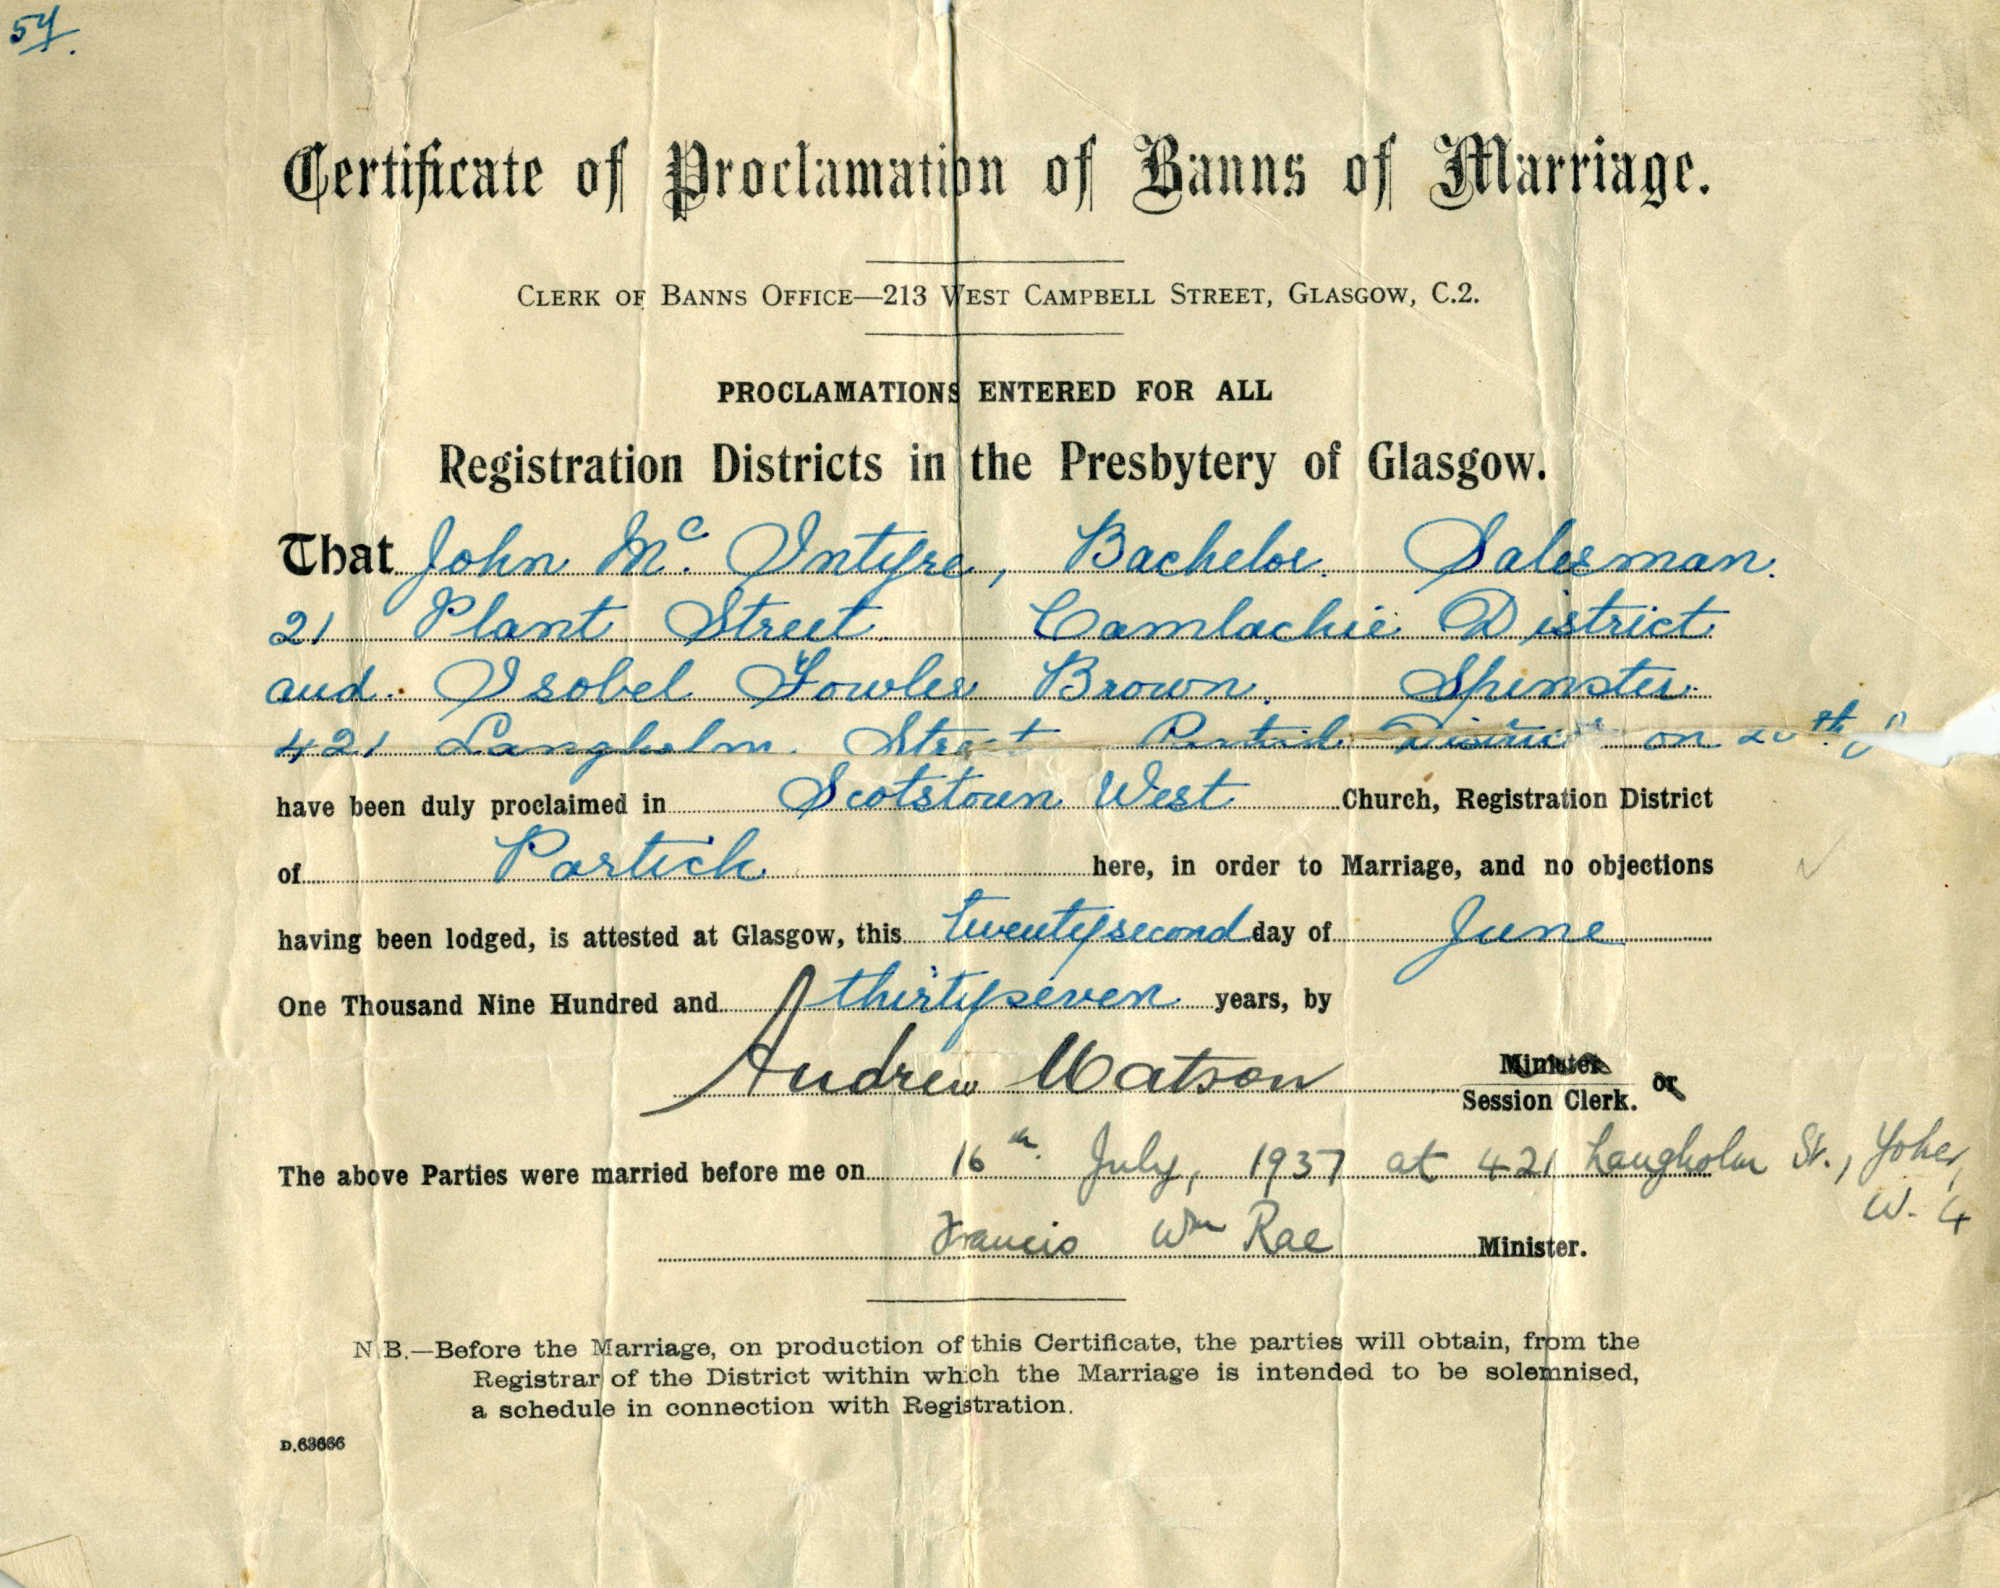 54.
Certificate of Proclamation of Banns of Marriage.
CLERK OF BANNS OFFICE—213 WEST CAMPBELL STREET, GLASGOW, C.2.
PROCLAMATIONS ENTERED FOR ALL
Registration Districts in the Presbytery of Glasgow.
That John Mc. Intyre, Bachelor. Salesman.
21 Plant Street Camlachie District
and. Isobel Fowler Brown. Spinster.
421 Langholm Street Partick District on 20th
have been duly proclaimed in Scotstoun West Church, Registration District
of Partick here, in order to Marriage, and no objections
having been lodged, is attested at Glasgow, this twentysecond day of June
One Thousand Nine Hundred and thirtyseven years, by
Andrew Watson Minister or
Session Clerk.
The above Parties were married before me on 16th July, 1937 at 421 Langholm St., Yoker,
W. 4
Francis Wm Rae Minister.
N.B.—Before the Marriage, on production of this Certificate, the parties will obtain, from the
Registrar of the District within which the Marriage is intended to be solemnised,
a schedule in connection with Registration.
D.63666